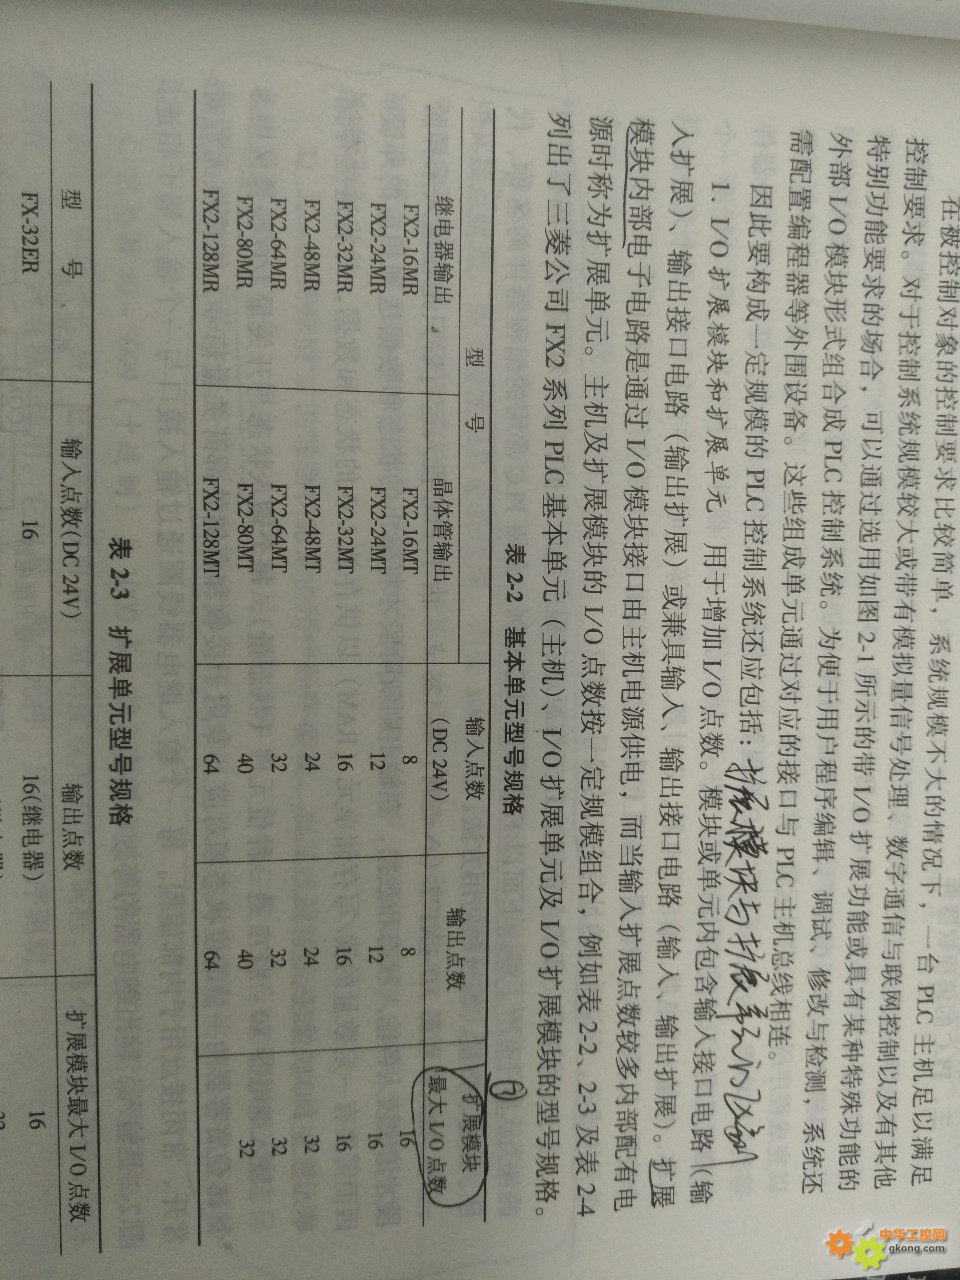 在被控制对象的控制要求比较简单，系统规模不大的情况下，一台 PLC 主机足以满足
控制要求。对于控制系统规模较大或带有模拟量信号处理、数字通信与联网控制以及有其他
特别功能要求的场合，可以通过选用如图 2-1 所示的带 I/O 扩展功能或具有某种特殊功能的
外部 I/O 模块形式组合成 PLC 控制系统。为便于用户程序编辑、调试、修改与检测，系统还
需配置编程器等外围设备。这些组成单元通过对应的接口与 PLC 主机总线相连。
因此要构成一定规模的 PLC 控制系统还应包括：扩展模块与扩展单元的区别
1. I/O 扩展模块和扩展单元 用于增加 I/O 点数。模块或单元内包含输入接口电路（输
入扩展）、输出接口电路（输出扩展）或兼具输入、输出接口电路（输入、输出扩展）。扩展
模块内部电子电路是通过 I/O 模块接口由主机电源供电，而当输入扩展点数较多内部配有电
源时称为扩展单元。主机及扩展模块的 I/O 点数按一定规模组合，例如表 2-2、2-3 及表 2-4
列出了三菱公司 FX2 系列 PLC 基本单元（主机）、I/O 扩展单元及 I/O 扩展模块的型号规格。
表 2-2 基本单元型号规格
型 号 输入点数 输出点数 扩展模块
继电器输出 晶体管输出 (DC 24V) 最大 I/O 点数
FX2-16MR FX2-16MT 8 8 16
FX2-24MR FX2-24MT 12 12 16
FX2-32MR FX2-32MT 16 16 16
FX2-48MR FX2-48MT 24 24 32
FX2-64MR FX2-64MT 32 32 32
FX2-80MR FX2-80MT 40 40 32
FX2-128MR FX2-128MT 64 64
表 2-3 扩展单元型号规格
型 号 输入点数(DC 24V) 输出点数 扩展模块最大 I/O 点数
FX-32ER 16 16(继电器) 16
中华工控网
gkong.com